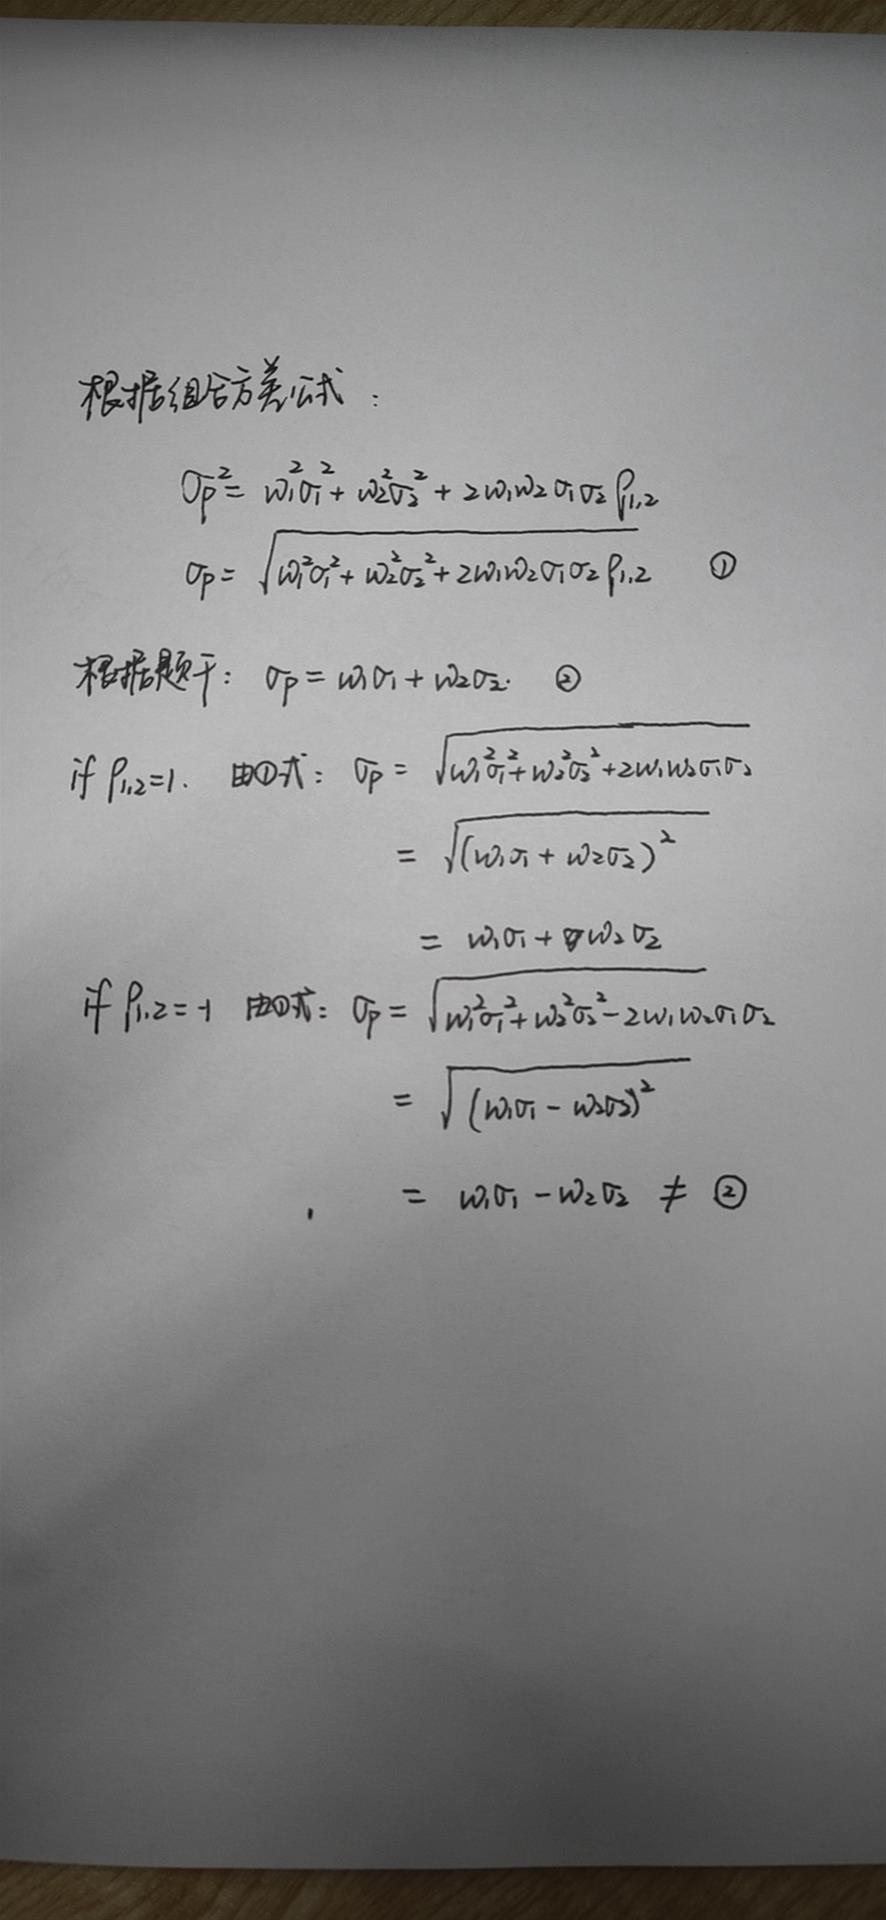 根据组合方差公式：
σp² = w₁²σ₁² + w₂²σ₂² + 2w₁w₂σ₁σ₂ρ₁,₂
σp = √(w₁²σ₁² + w₂²σ₂² + 2w₁w₂σ₁σ₂ρ₁,₂) ①
根据题干：σp = w₁σ₁ + w₂σ₂. ②
if ρ₁,₂=1. 由①式：σp = √(w₁²σ₁² + w₂²σ₂² + 2w₁w₂σ₁σ₂)
= √(w₁σ₁ + w₂σ₂)²
= w₁σ₁ + w₂σ₂
if ρ₁,₂=-1 由①式：σp = √(w₁²σ₁² + w₂²σ₂² - 2w₁w₂σ₁σ₂)
= √(w₁σ₁ - w₂σ₂)²
= w₁σ₁ - w₂σ₂ ≠ ②